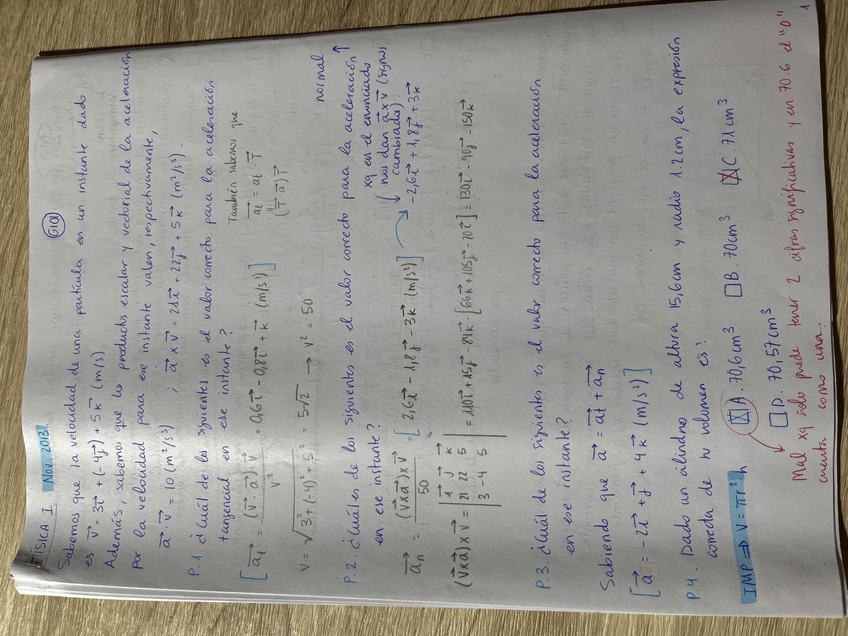 FÍSICA I Nov. 2013 GIQ
Sabemos que la velocidad de una partícula en un instante dado
es v⃗ = 3i⃗ + (-4j⃗) + 5k⃗ (m/s).
Además, sabemos que los productos escalar y vectorial de la aceleración
por la velocidad para ese instante valen, respectivamente,
a⃗ · v⃗ = 10 (m²/s³) ; a⃗ x v⃗ = 21i⃗ + 22j⃗ + 5k⃗ (m²/s³).
P.1 ¿Cuál de los siguientes es el valor correcto para la aceleración
tangencial en ese instante?
[a⃗t = (v⃗·a⃗)·v⃗ / v² = 0,6i⃗ - 0,8j⃗ + k⃗ (m/s²)]
También sabemos que
a⃗t = at · T⃗
"
(T⃗ a⃗) T⃗
v = √3² + (-4)² + 5² = 5√2 → v² = 50
normal
P.2. ¿Cuáles de los siguientes es el valor correcto para la aceleración ↑
en ese instante?
xq en el enunciado
nos dan a⃗ x v⃗ (signos
cambiados)
a⃗n = (v⃗xa⃗)x v⃗ / 50 = [2,6i⃗ - 1,8j⃗ - 3k⃗ (m/s²)]
-2,6i⃗ + 1,8j⃗ + 3k⃗
(v⃗xa⃗)x v⃗ = | i⃗ j⃗ k⃗ | = 110i⃗ + 15j⃗ - 84k⃗ - [66k⃗ + 105j⃗ - 20i⃗] = 130i⃗ - 90j⃗ - 150k⃗
| 21 22 5 |
| 3 -4 5 |
P.3. ¿Cuál de los siguientes es el valor correcto para la aceleración
en ese instante?
Sabiendo que a⃗ = a⃗t + a⃗n
[a⃗ = -2i⃗ + j⃗ + 4k⃗ (m/s²)]
P.4. Dado un cilindro de altura 15,6cm y radio 1.2cm, la expresión
correcta de su volumen es:
IMP ⇒ V = πr² h
☒ A. 70,6cm³ ☐ B. 70cm³ ☒ C. 71cm³
☐ D. 70,57cm³
Mal xq solo puede tener 2 cifras significativas y en 70.6 el "0"
cuenta como una.
1